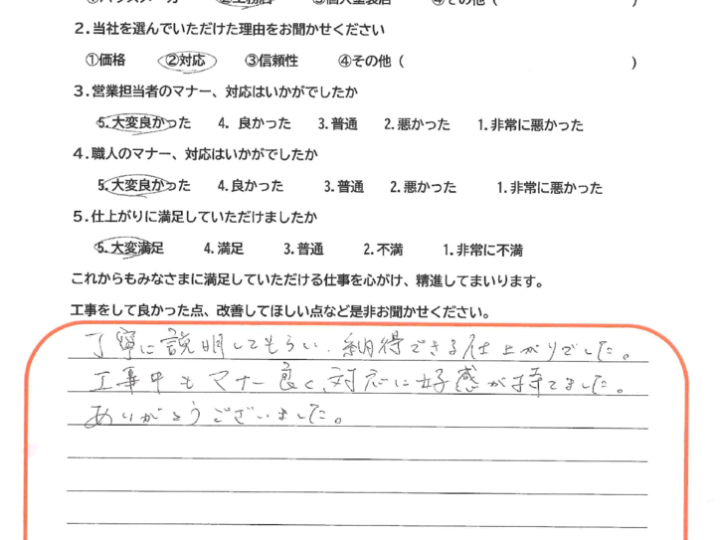 ①ハウスメーカー ②工務店 ③個人塗装店 ④その他（ ）
2.当社を選んでいただけた理由をお聞かせください
①価格 ②対応 ③信頼性 ④その他（ ）
3.営業担当者のマナー、対応はいかがでしたか
5.大変良かった 4.良かった 3.普通 2.悪かった 1.非常に悪かった
4.職人のマナー、対応はいかがでしたか
5.大変良かった 4.良かった 3.普通 2.悪かった 1.非常に悪かった
5.仕上がりに満足していただけましたか
5.大変満足 4.満足 3.普通 2.不満 1.非常に不満
これからもみなさまに満足していただける仕事を心がけ、精進してまいります。
工事をして良かった点、改善してほしい点など是非お聞かせください。
丁寧に説明してもらい、納得できる仕上がりでした。
工事中もマナー良く、対応に好感が持てました。
ありがとうございました。